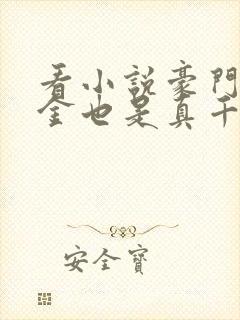 看小説豪門
金也是真千
安全寶